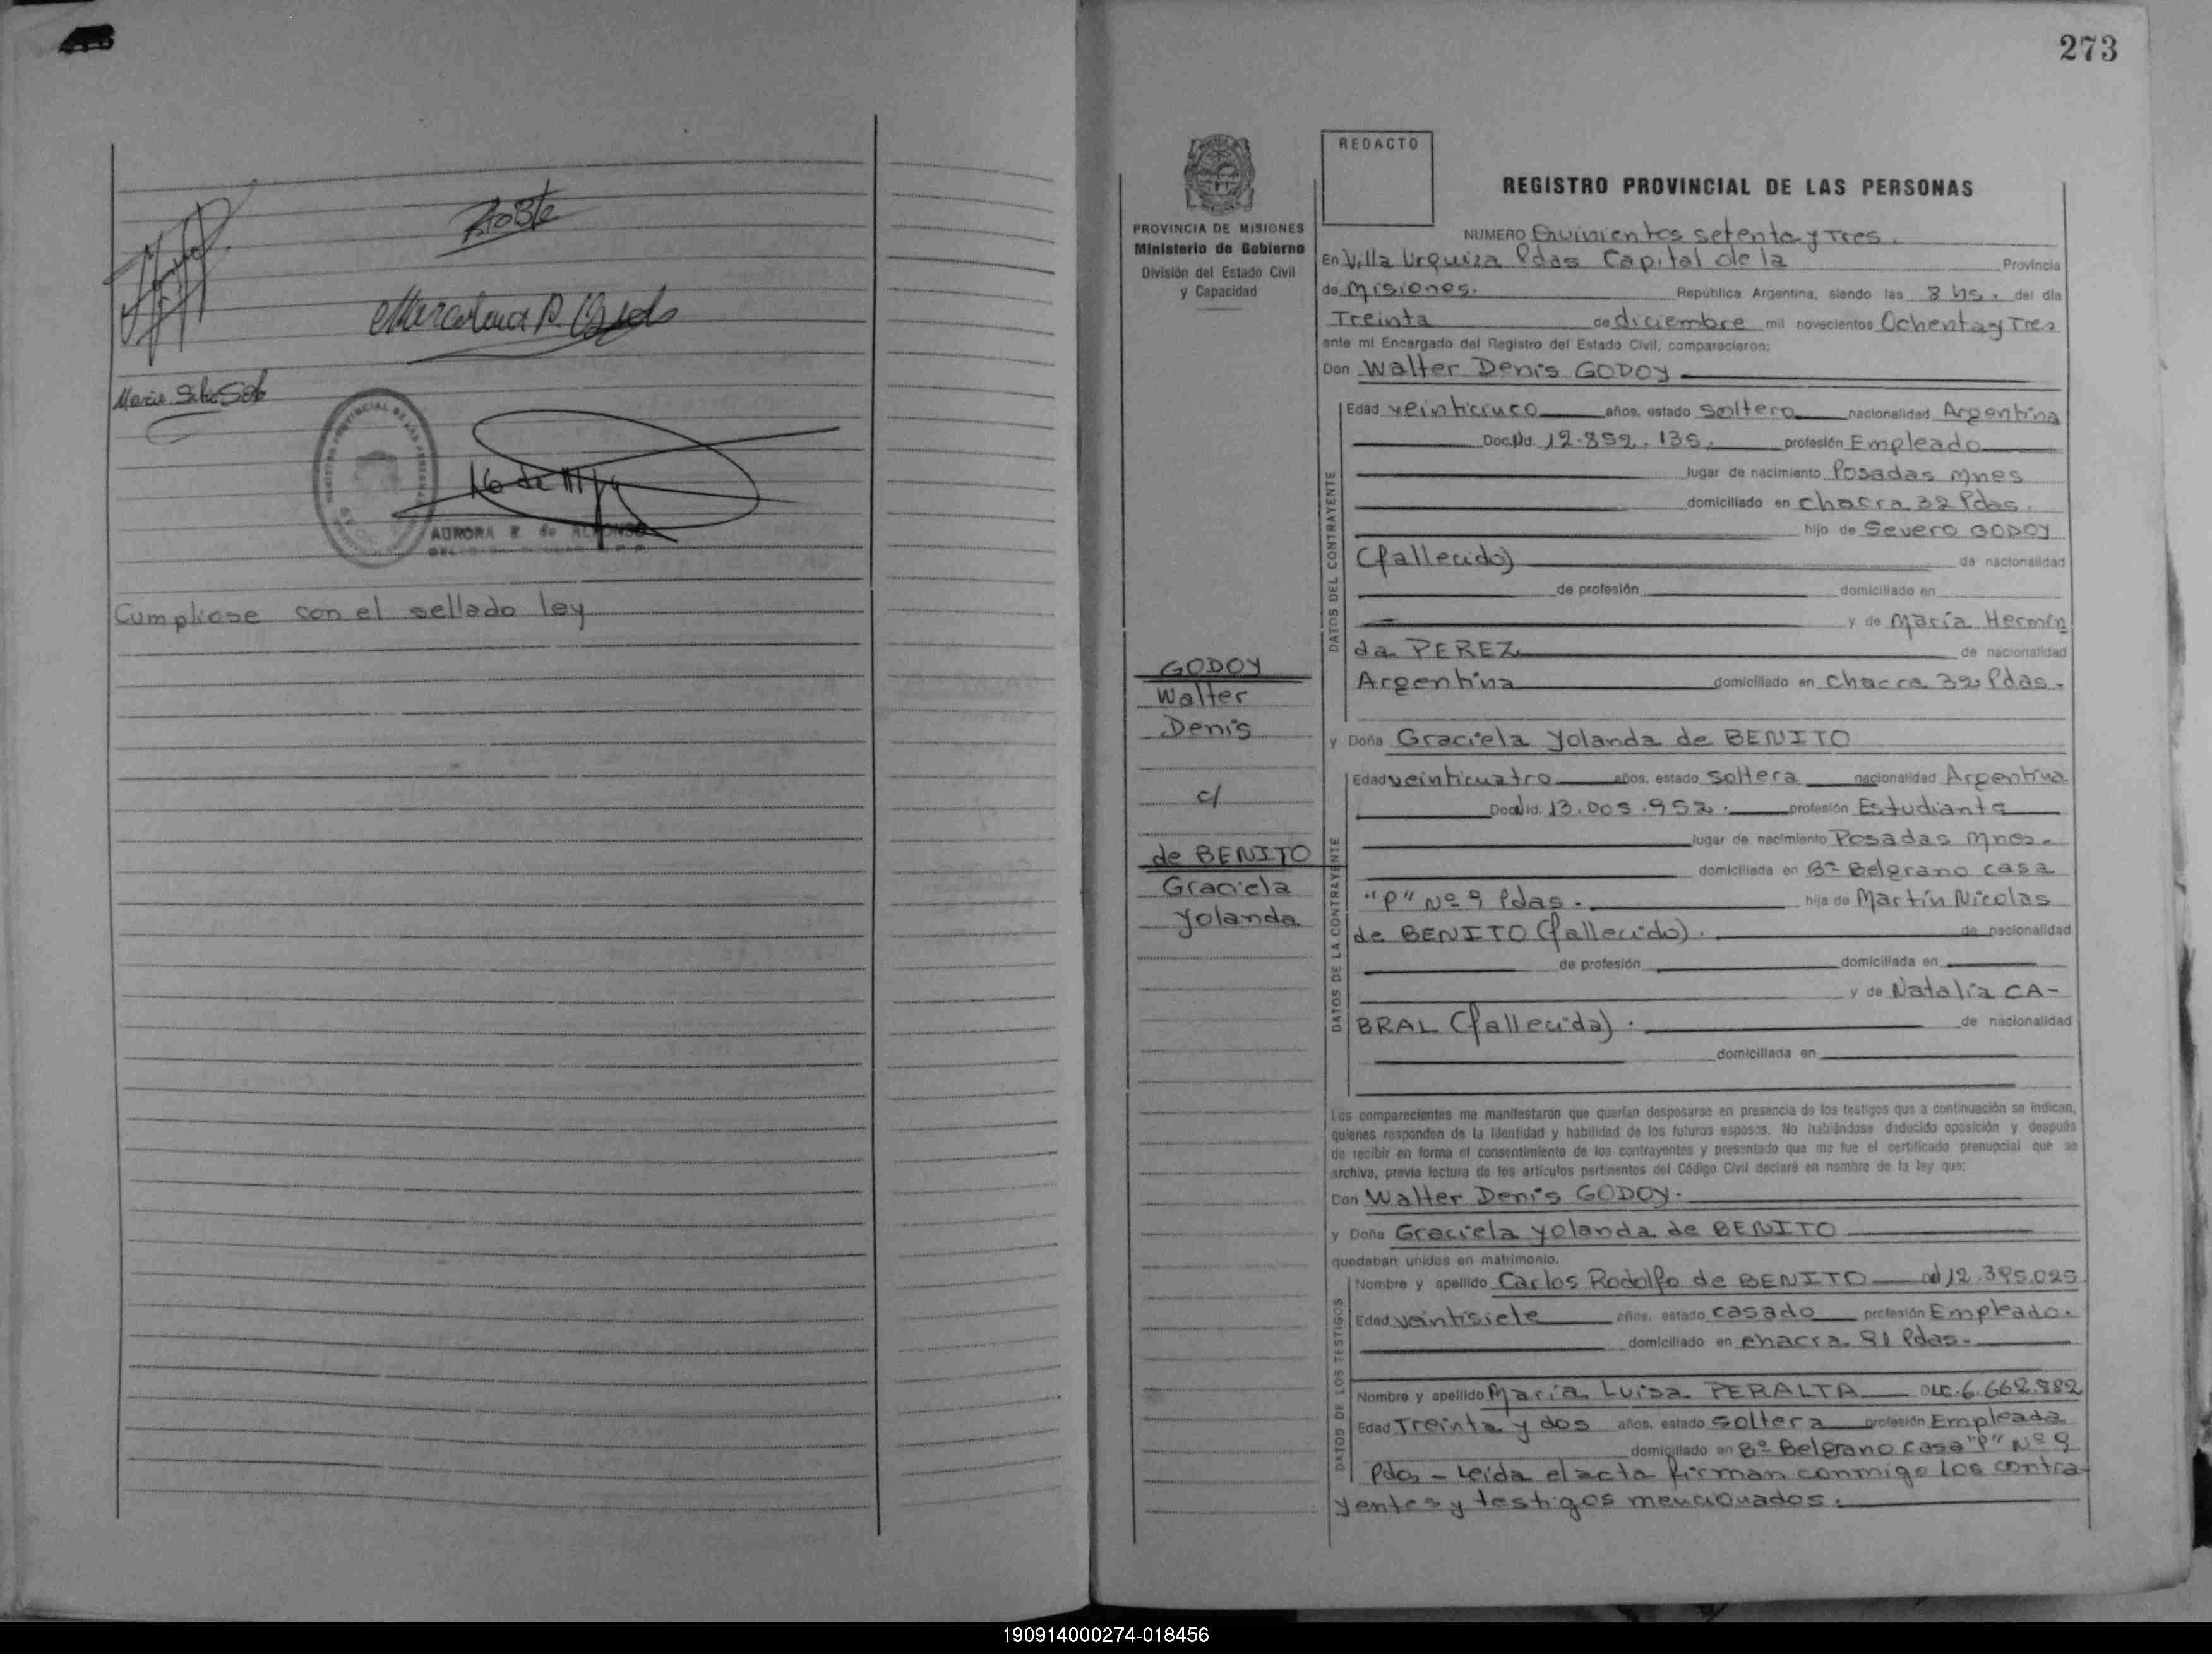 Cumpliose con el sellado ley
273
REDACTO
REGISTRO PROVINCIAL DE LAS PERSONAS
PROVINCIA DE MISIONES
Ministerio de Gobierno
División del Estado Civil
y Capacidad
NUMERO Quinientos setenta y Tres.
En Villa Urquiza Pdas Capital de la Provincia
de Misiones. República Argentina, siendo las 8 hs. del día
Treinta de diciembre mil novecientos Ochenta y Tres
ante mí Encargado del Registro del Estado Civil, comparecieron:
Don Walter Denis GODOY
Edad veinticinco años, estado soltero nacionalidad Argentina
Doc. Nd. 12.852.135. profesión Empleado
lugar de nacimiento Posadas Mnes
domiciliado en chacra 32 Pdas.
hijo de Severo GODOY
(fallecido) de nacionalidad
de profesión domiciliado en
y de María Hermin
da PEREZ de nacionalidad
Argentina domiciliado en chacra 32 Pdas.
DATOS DEL CONTRAYENTE
GODOY
Walter
Denis
c/
de BENITO
Graciela
Yolanda
y Doña Graciela Yolanda de BENITO
Edad veinticuatro años, estado soltera nacionalidad Argentina.
Doc. Id. 13.005.952. profesión Estudiante
lugar de nacimiento Posadas Mnes.
domiciliada en Bº Belgrano casa
"P" Nº 9 Pdas. hija de Martín Nicolas
de BENITO (fallecido). de nacionalidad
de profesión domiciliada en
y de Natalia CA-
BRAL (fallecida). de nacionalidad
domiciliada en
DATOS DE LA CONTRAYENTE
Los comparecientes me manifestaron que querían desposarse en presencia de los testigos que a continuación se indican,
quienes responden de la identidad y habilidad de los futuros esposos. No habiéndose deducido oposición y después
de recibir en forma el consentimiento de los contrayentes y presentado que me fue el certificado prenupcial que se
archiva, previa lectura de los artículos pertinentes del Código Civil declaré en nombre de la ley que:
Don Walter Denis GODOY.
y Doña Graciela Yolanda de BENITO
quedaban unidos en matrimonio.
Nombre y apellido Carlos Rodolfo de BENITO 12.395.025
Edad veintisiete años, estado casado profesión Empleado.
domiciliado en chacra 81 Pdas.
Nombre y apellido María Luisa PERALTA DLC. 6.662.882
Edad Treinta y dos años, estado soltera profesión Empleada
domiciliado en Bº Belgrano casa "P" Nº 9
Pdas - Leída el acta firman conmigo los contra-
yentes y testigos mencionados.
DATOS DE LOS TESTIGOS
190914000274-018456